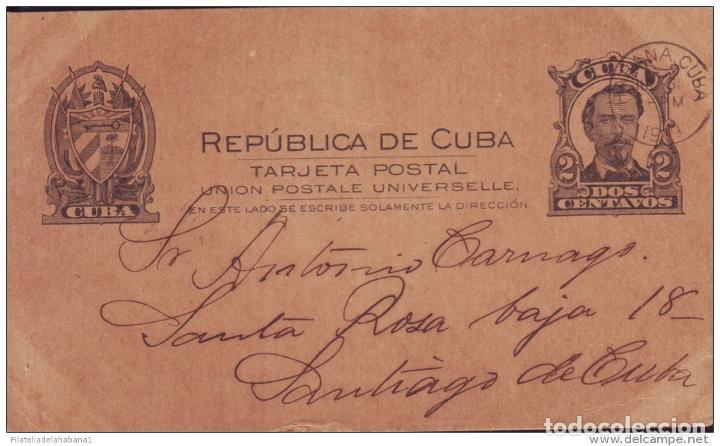 CUBA
REPÚBLICA DE CUBA
TARJETA POSTAL
UNION POSTALE UNIVERSELLE.
EN ESTE LADO SE ESCRIBE SOLAMENTE LA DIRECCIÓN
CUBA
2 2
DOS
CENTAVOS
CUBA
M
Sr Antonio Carnago.
Santa Rosa baja 18-
Santiago de Cuba
Filateliadelahabana1
todocoleccion
www.delcampe.net